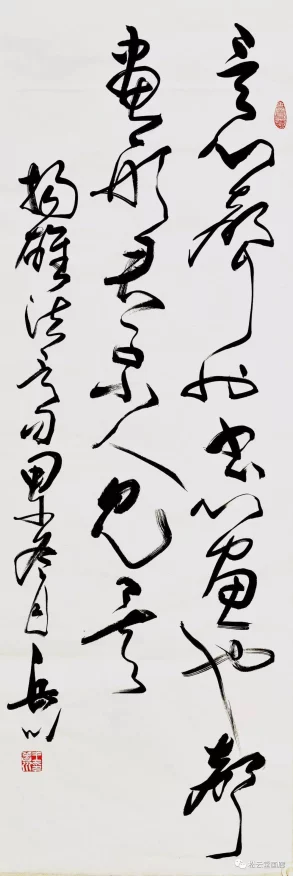 言心聲也書心畫也聲
畫形君子小人見矣
揚雄法言句冬月岳川